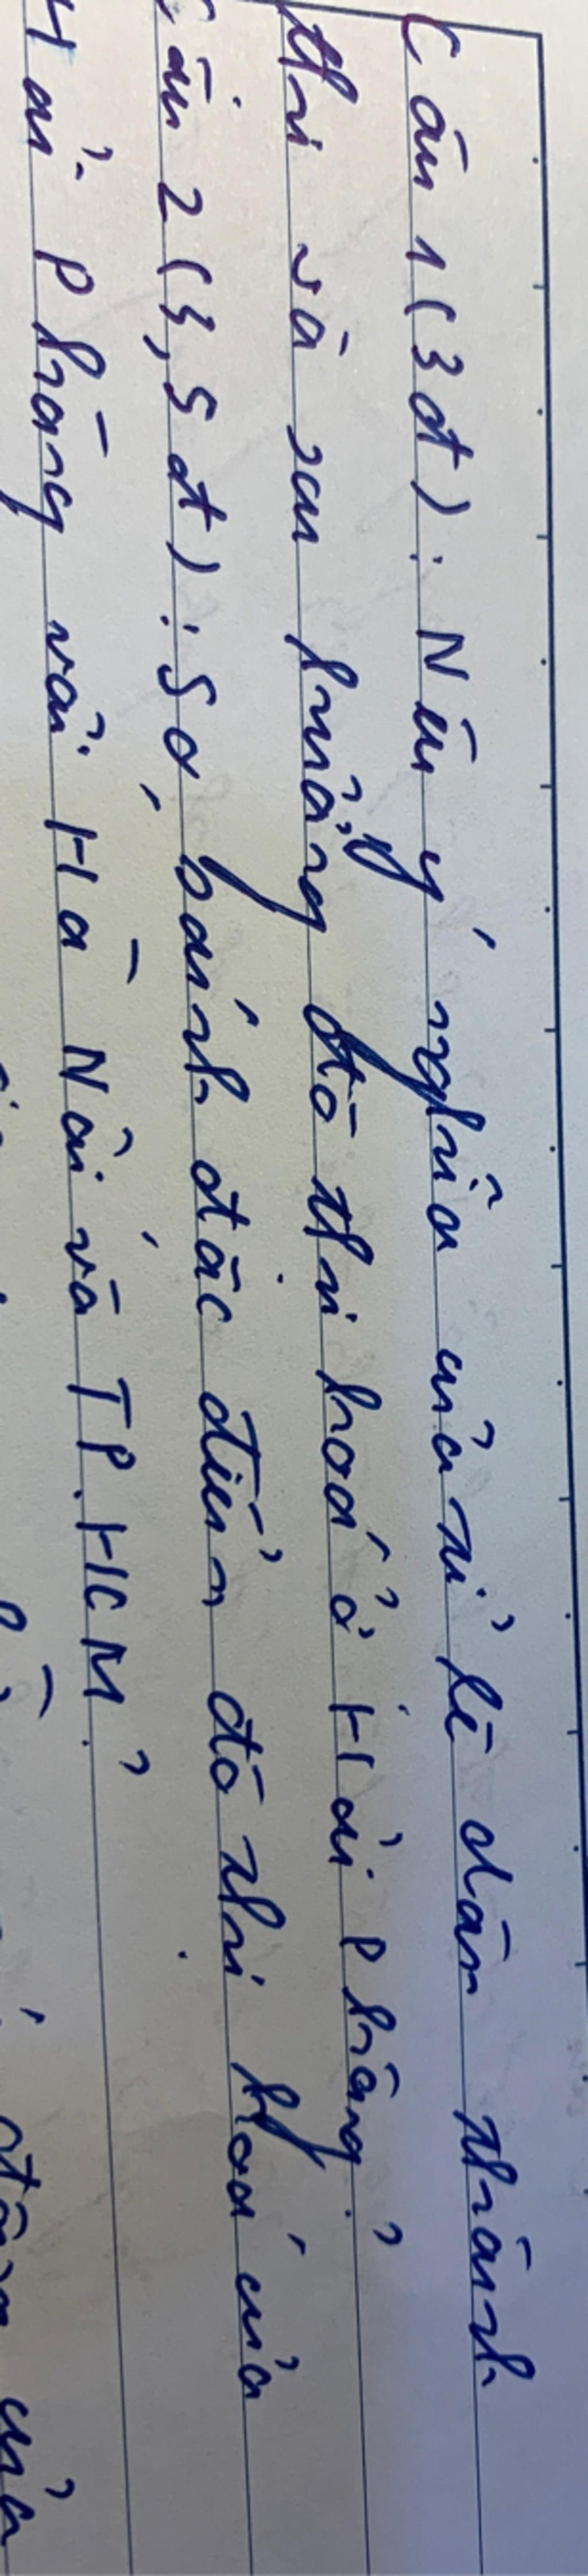 Câu 1 (3đ): Nêu ý nghĩa của tỉ lệ dân thành
thị và xu hướng đô thị hoá ở Hải Phòng?
Câu 2 (3,5đ): So sánh đặc điểm đô thị hoá của
Hải Phòng với Hà Nội và TP.HCM?